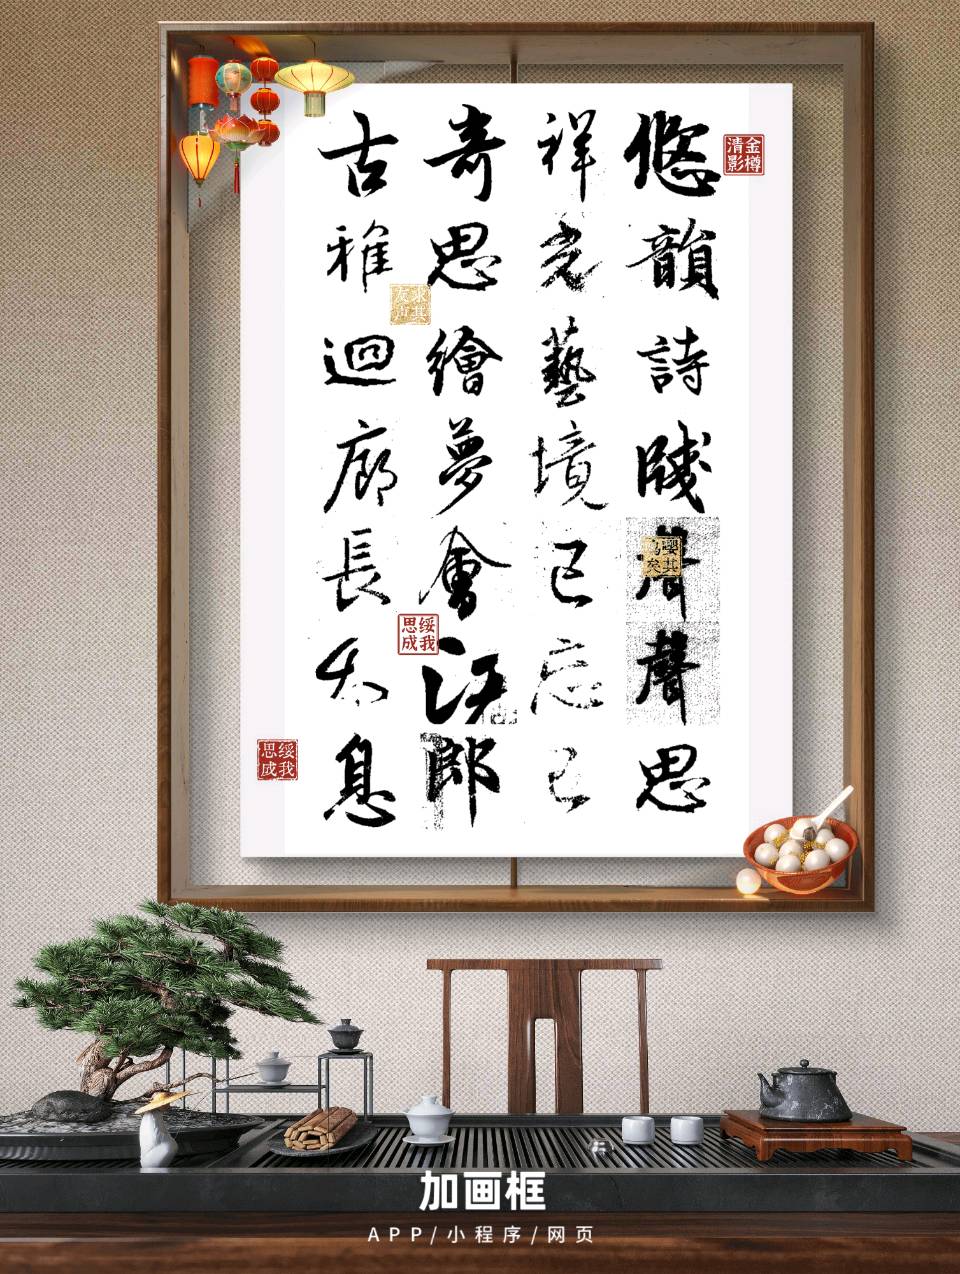 悠韻詩牋聲聲思
祥光藝境已忘己
奇思繪夢會江郎
古雅迴廊長太息
金樽清影
嚶其鳴矣
求其友声
绥我思成
绥我思成
加画框
APP/小程序/网页